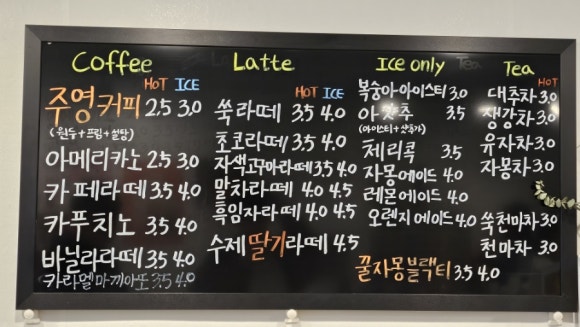 Coffee
HOT ICE
주영커피 2.5 3.0
(원두+프림+설탕)
아메리카노 2.5 3.0
카페라떼 3.5 4.0
카푸치노 3.5 4.0
바닐라라떼 3.5 4.0
카라멜마끼아또 3.5 4.0
Latte
HOT ICE
쑥라떼 3.5 4.0
초코라떼 3.5 4.0
자색고구마라떼 3.5 4.0
말차라떼 4.0 4.5
흑임자라떼 4.0 4.5
수제딸기라떼 4.5
Ice only
복숭아아이스티 3.0
아샷추 3.5
(아이스티+샷추가)
체리콕 3.5
자몽에이드 4.0
레몬에이드 4.0
오렌지에이드 4.0
꿀자몽블랙티 3.5 4.0
Tea
HOT
대추차 3.0
생강차 3.0
유자차 3.0
자몽차 3.0
쑥천마차 3.0
천마차 3.0